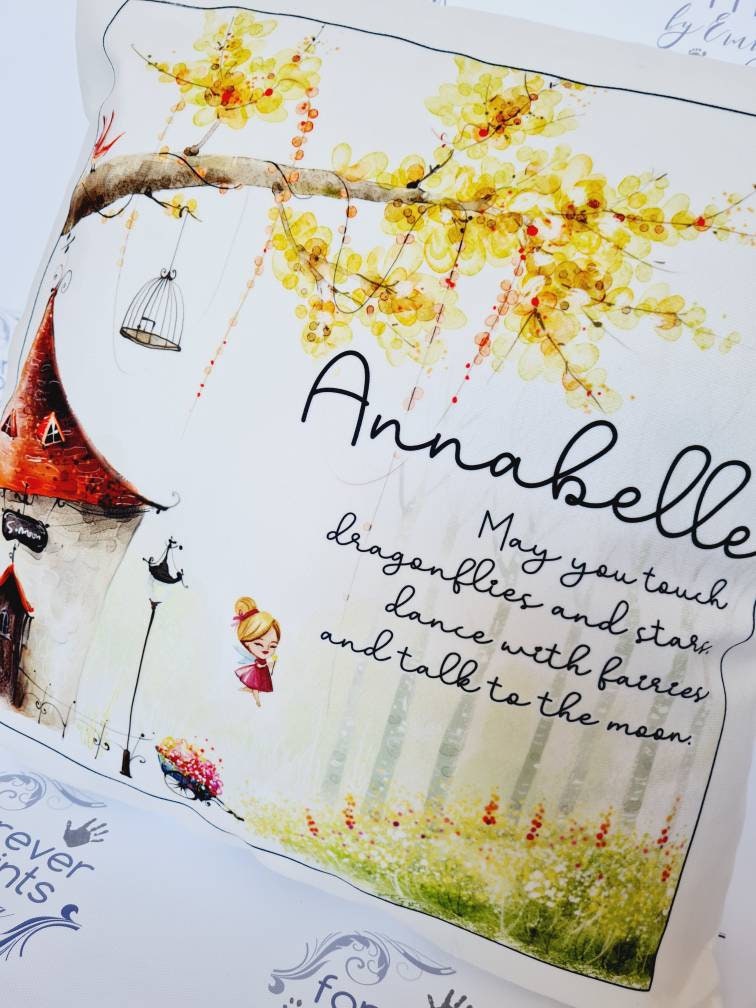 by Em
Annabelle
May you touch
dragonflies and stars,
dance with fairies
and talk to the moon.
S.moon
rever
ints
for